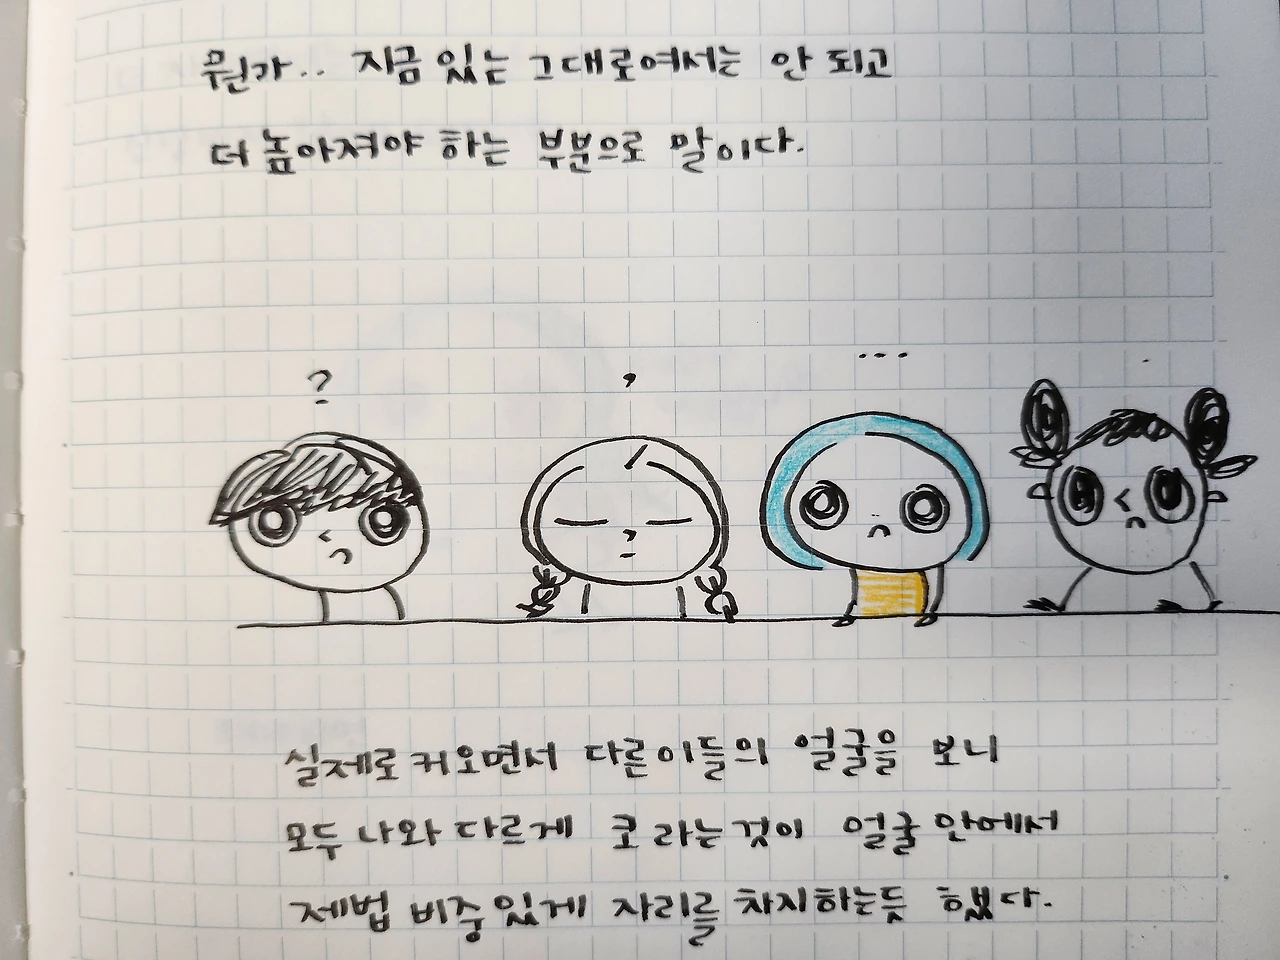 뭔가.. 지금 있는 그대로여서는 안 되고
더 높아져야 하는 부분으로 말이다.
?
,
...
실제로 커오면서 다른이들의 얼굴을 보니
모두 나와 다르게 코 라는것이 얼굴 안에서
제법 비중있게 자리를 차지하는듯 했다.